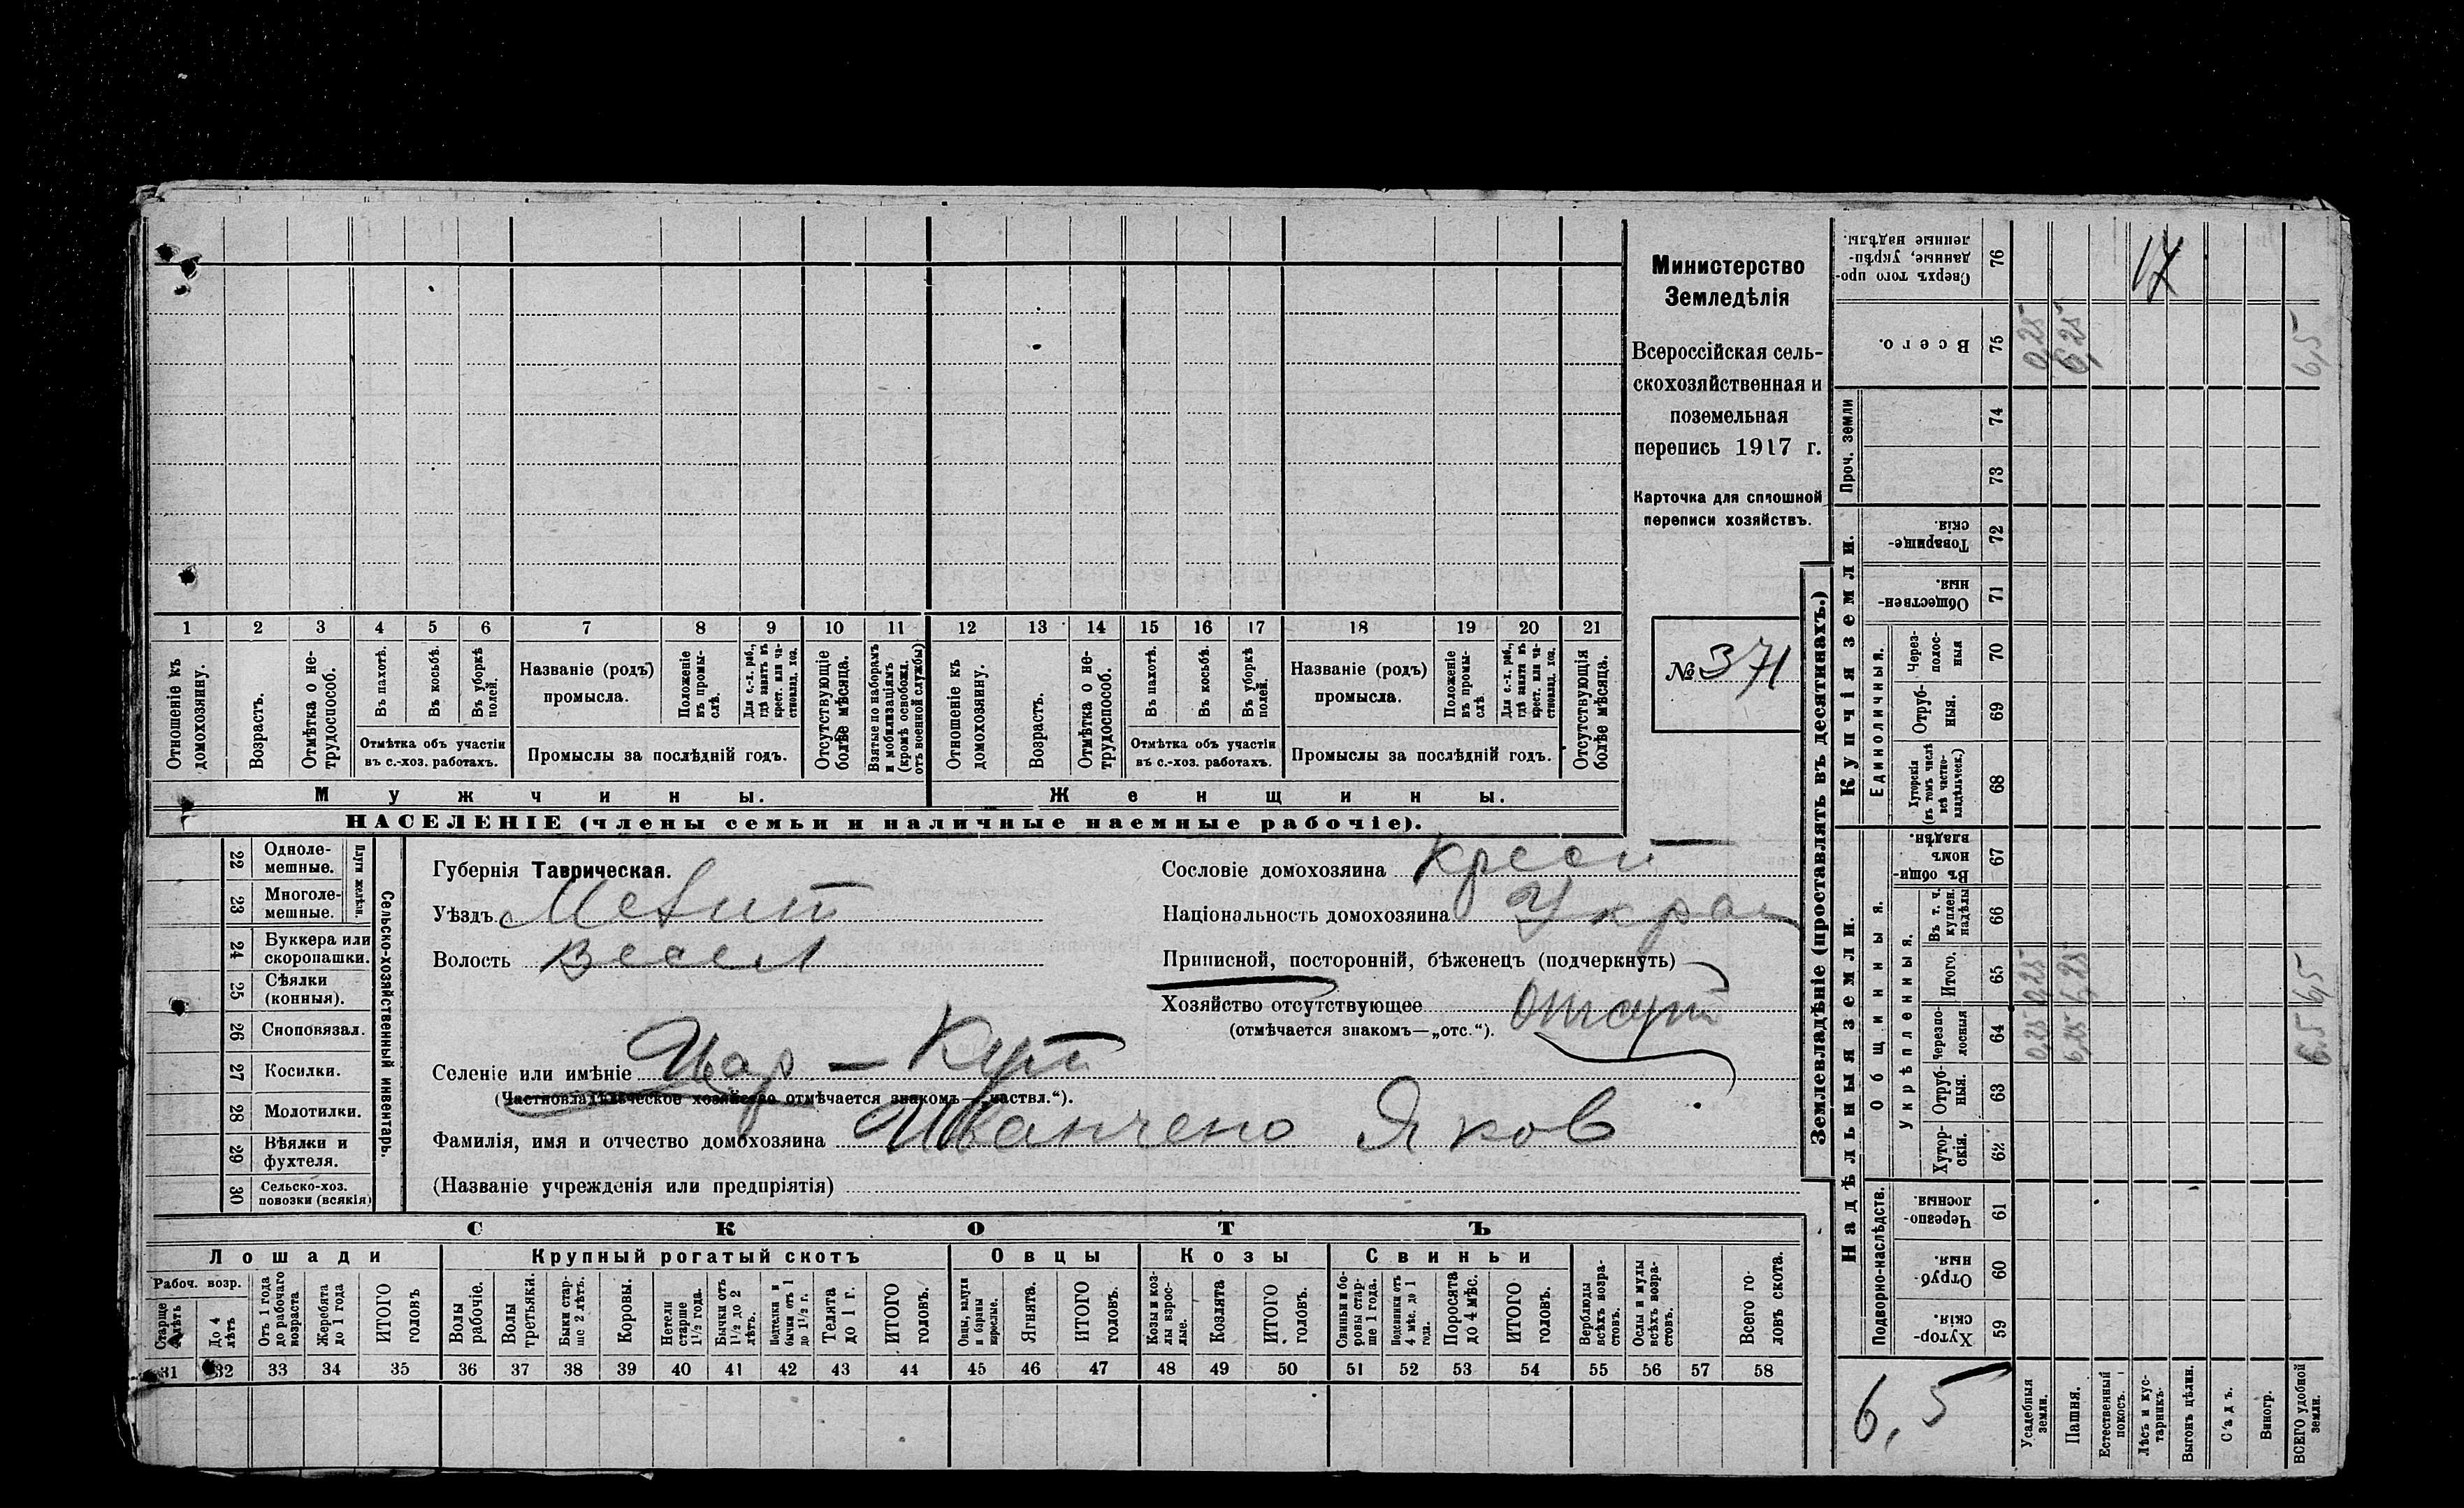 Министерство
Земледѣлія
Всероссійская сель-
скохозяйственная и
поземельная
перепись 1917 г.
Карточка для сплошной
переписи хозяйствъ.
№ 371
1 2 3 4 5 6 7 8 9 10 11 12 13 14 15 16 17 18 19 20 21
Отношеніе къ домохозяину.
Возрастъ.
Отмѣтка о не-трудоспособ.
Въ пахотѣ.
Въ косьбѣ.
Въ уборкѣ полей.
Отмѣтка объ участіи
въ с.-хоз. работахъ.
Названіе (родъ)
промысла.
Положеніе въ промы-слѣ.
Для с.-х. раб., гдѣ занятъ въ крест. или ча-стновлад. хоз.
Промыслы за послѣдній годъ.
Отсутствующіе болѣе мѣсяца.
Взятые по наборамъ и мобилизаціямъ (кромѣ освобожд. отъ военной службы)
Отношеніе къ домохозяину.
Возрастъ.
Отмѣтка о не-трудоспособ.
Въ пахотѣ.
Въ косьбѣ.
Въ уборкѣ полей.
Отмѣтка объ участіи
въ с.-хоз. работахъ.
Названіе (родъ)
промысла.
Положеніе въ промы-слѣ.
Для с.-х. раб., гдѣ занятъ въ крест. или ча-стновлад. хоз.
Промыслы за послѣдній годъ.
Отсутствующія болѣе мѣсяца.
Мужчины.
Женщины.
НАСЕЛЕНІЕ (члены семьи и наличные наемные рабочіе).
22 Одноле-мешные.
23 Многоле-мешные.
Плуги желѣзн.
24 Буккера или скоропашки.
25 Сѣялки (конныя).
26 Сноповязал.
27 Косилки.
28 Молотилки.
29 Вѣялки и фухтеля.
30 Сельско-хоз. повозки (всякія)
Сельско-хозяйственный инвентарь.
Губернія Таврическая.
Уѣздъ Мелит
Волость Весел
Селеніе или имѣніе Цар - Кут
(Частновладѣльческое хозяйство отмѣчается знакомъ—„частвл.“).
Фамилія, имя и отчество домохозяина Иванчено Яков
(Названіе учрежденія или предпріятія)
Сословіе домохозяина Крест
Національность домохозяина Украи
Приписной, посторонній, бѣженецъ (подчеркнуть)
Хозяйство отсутствующее Отсут
(отмѣчается знакомъ—„отс.“).
СКОТЪ
Лошади
Крупный рогатый скотъ
Овцы
Козы
Свиньи
Рабоч. возр.
Старше 4 лѣтъ
До 4 лѣтъ
Отъ 1 года до рабочаго возраста
Жеребята до 1 года
ИТОГО головъ
Волы рабочіе.
Волы третьяки.
Быки стар-ше 2 лѣтъ.
Коровы.
Нетели старше 1½ года.
Бычки отъ 1½ до 2 лѣтъ.
Подтелки и бычки отъ 1 до 1½ г.
Телята до 1 г.
ИТОГО головъ.
Овцы, валухи и бараны взрослые.
Ягнята.
ИТОГО головъ.
Козы и коз-лы взрос-лые.
Козлята
ИТОГО головъ.
Свиньи и бо-ровы стар-ше 1 года.
Подсвинки отъ 4 мѣс. до 1 года.
Поросята до 4 мѣс.
ИТОГО головъ.
Верблюды всѣхъ возра-стовъ.
Ослы и мулы всѣхъ возра-стовъ.
Всего го-ловъ скота.
31 32 33 34 35 36 37 38 39 40 41 42 43 44 45 46 47 48 49 50 51 52 53 54 55 56 57 58
Землевладѣніе (проставлять въ десятинахъ.)
Сверхъ того про-данные, укрѣп-ленные надѣлы. 76
17
Всего. 75 0,25 6,25 6,5
Проч. земли
74
73
Купчія земли.
Товарище-скія. 72
Обществен-ныя. 71
Единоличныя.
Через-полос-ныя 70
Отруб-ныя. 69
Хуторскія (въ томъ числѣ всѣ частно-владѣльческ.) 68
Надѣльныя земли.
Общинныя.
Въ общин-номъ владѣн. 67
Укрѣпленныя.
Въ т. ч. куплен. надѣлы 66
Итого. 65 0,25 6,25 6,5
Черезпо-лосныя 64 0,25 6,25 6.5
Отруб-ныя. 63
Хутор-скія. 62
Подворно-наслѣдств.
Черезпо-лосныя. 61
Отруб-ныя. 60
Хутор-скія. 59
6,5
Усадебныя земли.
Пашня.
Естественный покосъ.
Лѣсъ и кус-тарникъ.
Выгонъ цѣлин.
Садъ.
Виногр.
ВСЕГО удобной земли.